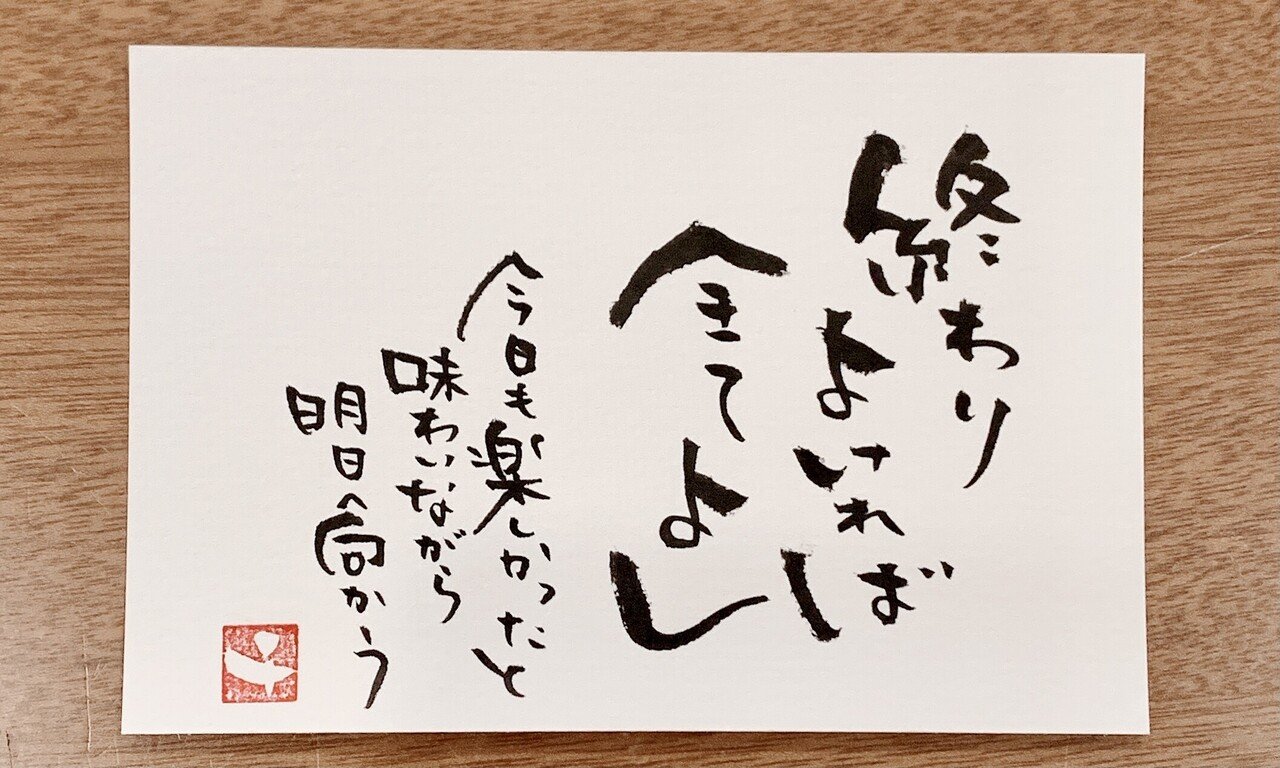 終わり
よければ
全てよし
今日も楽しかったと
味わいながら
明日へ向かう